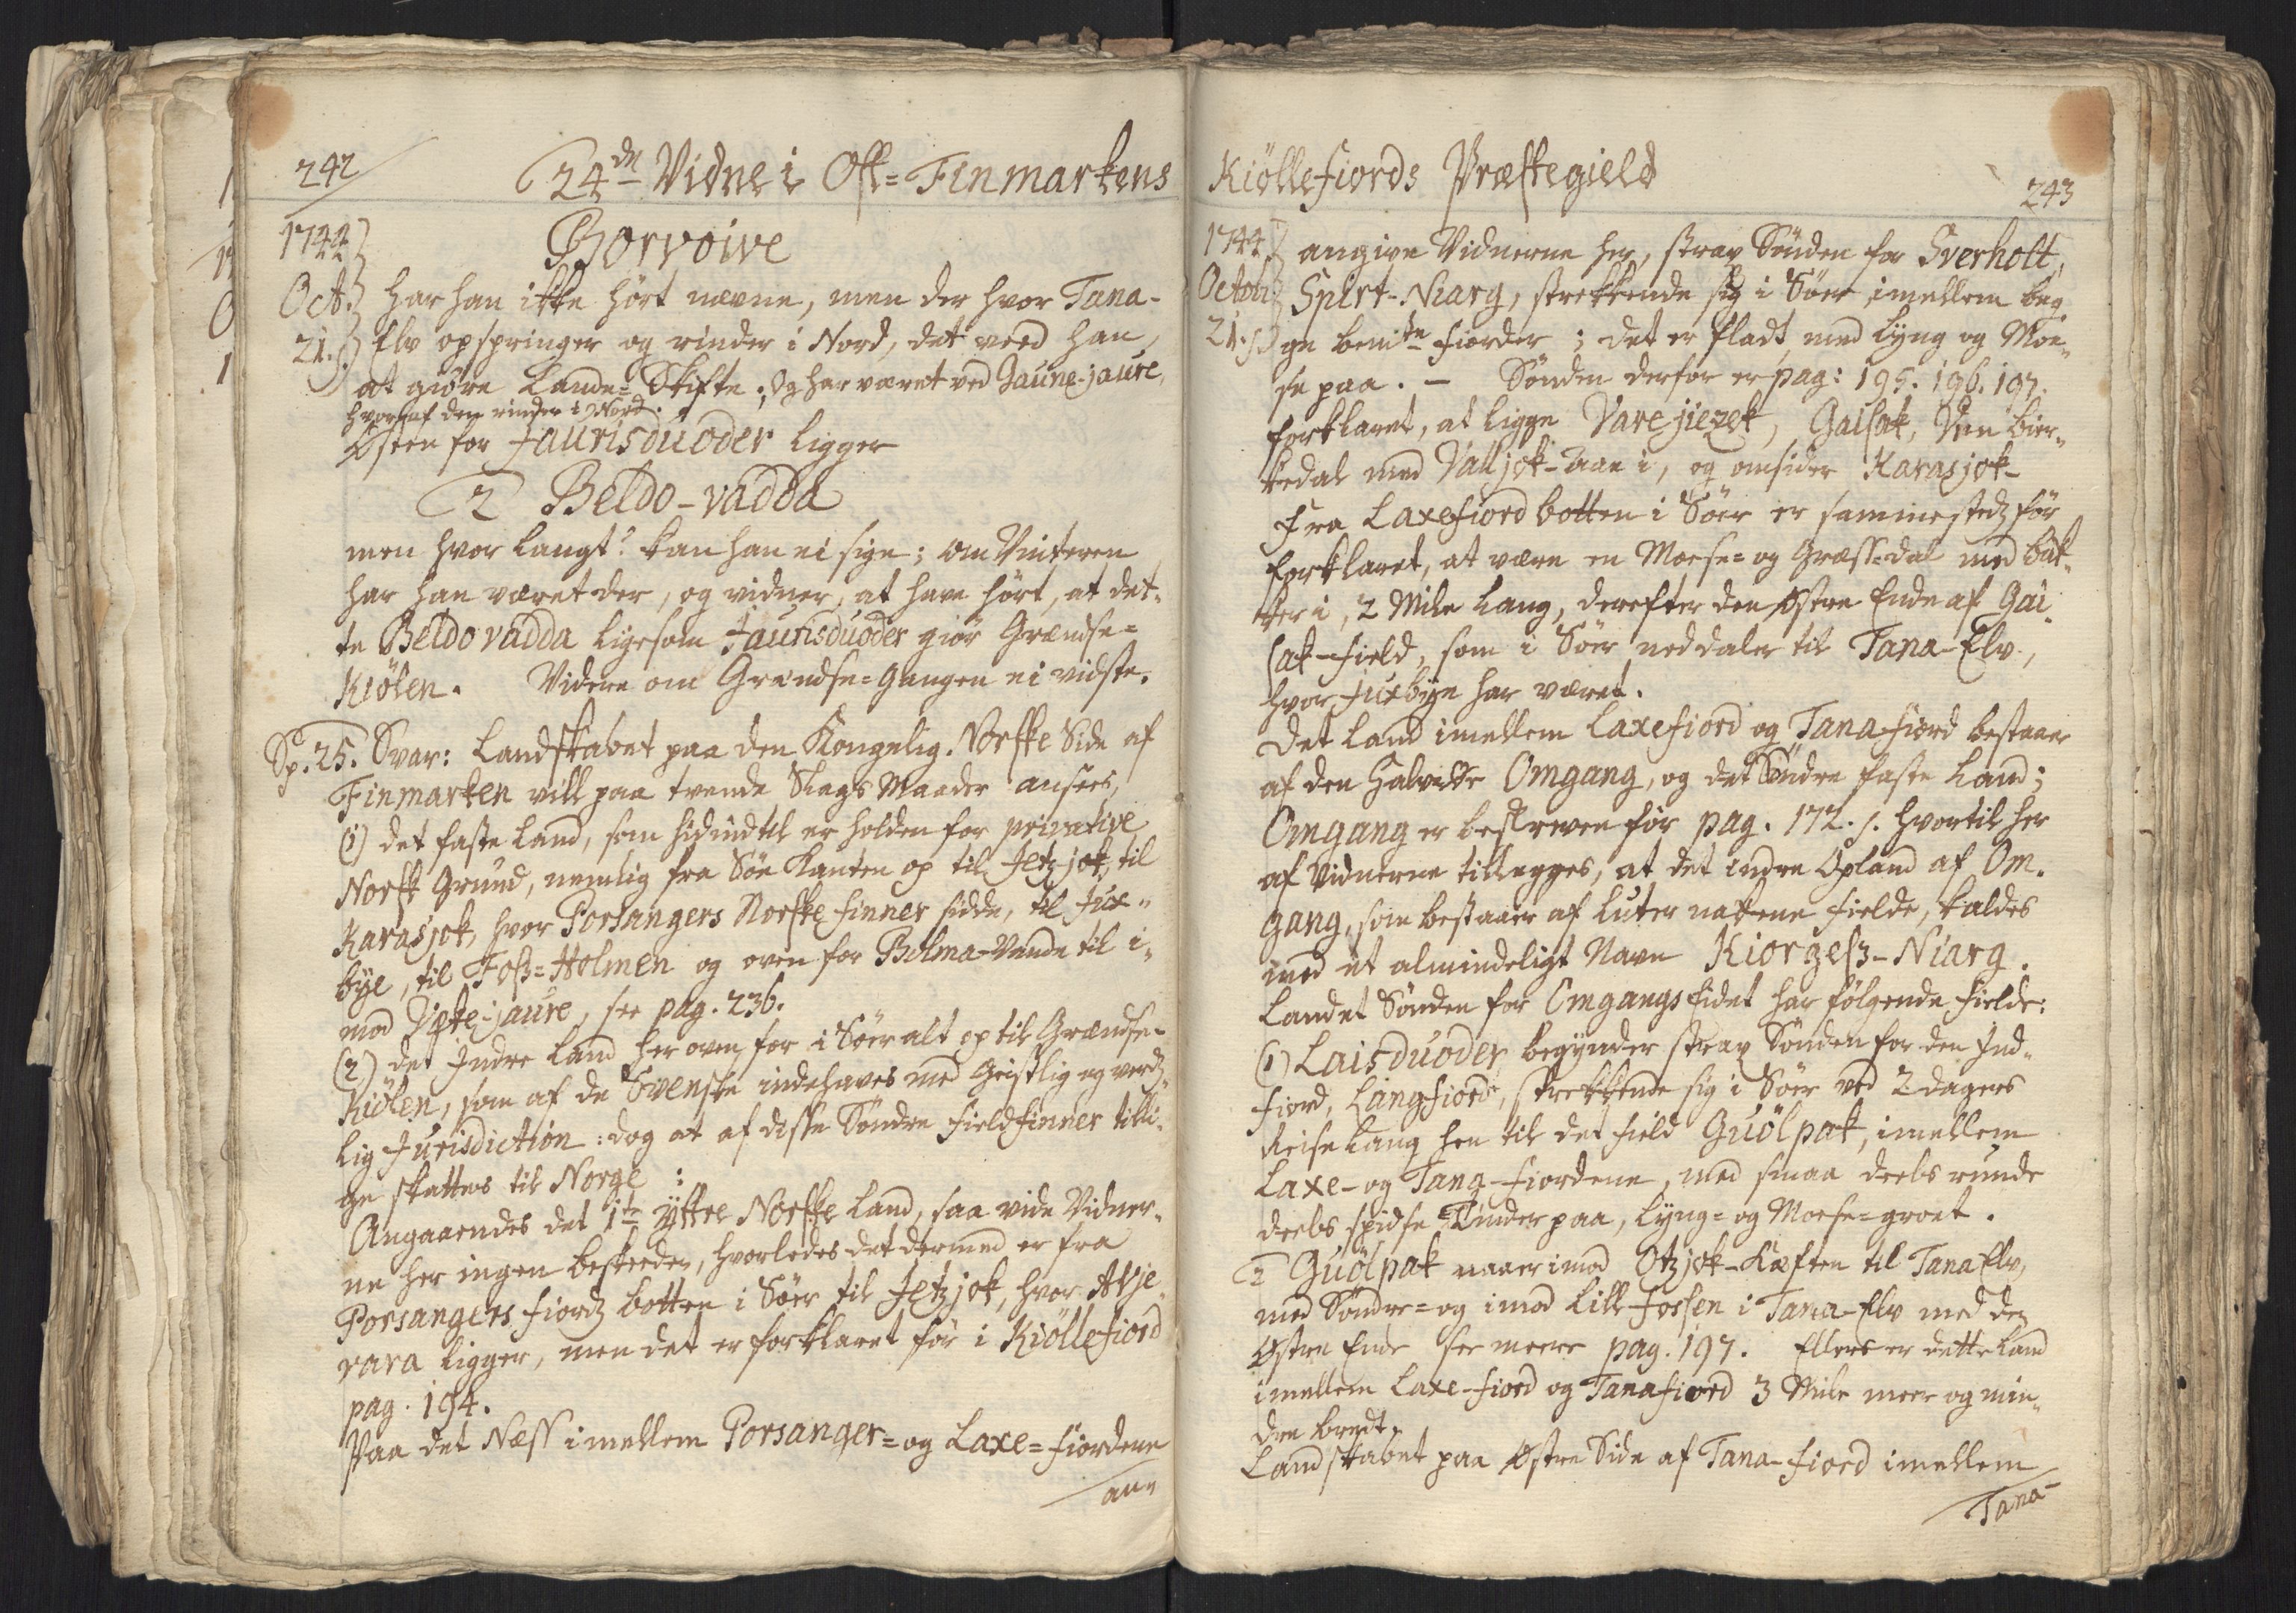 242
24de Vidne i Ost=Finmarkens
1744
Oct.
21.
Borvoive
har han ikke hört nævne, men der hvor Tana-
Elv opspringer og rinder i Nord, det veed han,
at giöre Lande=Skifte; Og har været ved Jaune-jaure,
hvoraf den rinder i Nord.
Østen for Jaurisduoder ligger
2 Beldo-vadda
men hvor langt? kan han ei sige; om Vinteren
har han været der, og vidner, at have hört, at det-
te Beldovadda ligesom Jaurisduoder giör Grændse=
Kiölen. Videre om Grændse=Gangen ei vidste.
Sp. 25. Svar: Landskabet paa den Kongelig. Norske Side af
Finmarken vill paa tvende Slags Maader ansees,
(1) det faste Land, som hidindtil er holden for privative
Norsk Grund, nemlig fra Söe Kanten op til Jetzjok, til
Karasjok, hvor Porsangers Norske Finner sidde, til Jux-
bÿe, til Foss=Holmen og oven for Bolma-Vande til i-
mod Vgte-jaure, see pag. 236.
(2) det Indre Land her oven for i Söer alt op til Grændse-
Kiölen, som af de Svenske indehaves med Geistlig og verds-
lig Jurisdiction: dog at af disse Söndre Fieldfinner tilli-
ge skattes til Norge:
Angaaendes det 1te ÿttre Norske Land, saa vide Vidner-
ne her ingen beskeeden, hvorledes det dermed er fra
Porsangers Fiords botten i Söer til Jetzjok, hvor Akje-
vara ligger, men det er forklaret för i Kiöllefiord
pag. 194.
Paa det Næss imellem Porsanger= og Laxe=Fiordene
an-
Kiöllefiords Præstegield
243
1744
Octobr
21.
angive Vidnerne her, strax Sönden for Sverholt,
Spirt-Niarg, strekkende sig i Söer imellem beg-
ge bemte Fiorder; det er fladt med Lyng og Moe-
se paa. – Sönden derfor er pag: 195. 196. 197.
forklaret, at ligge Varejiezek, Gaisak, Een Bier-
kedal med Valljok-Aae i, og omsider Karasjok-
Fra Laxefiordbotten i Söer er sammesteds för
forklaret, at være en Moese= og Græss=dal med bak-
ker i, 2 Mile lang, derefter den østre Ende af Gai-
sak-Field, som i Söer neddaler til Tana-Elv,
hvor Juxbÿe har været.
Det Land imellem Laxefiord og Tanafiord bestaaer
af den Halvøe Omgang, og det Söndre faste Land;
Omgang er beskreven för pag. 172. s. hvortil her
af Vidnerne tillægges, at det indre Opland af Om-
gang, som bestaaer af luter nakene Fielde, kaldes
med et almindeligt Navn Kiorgess-Niarg.
Landet Sönden for Omgangs Eidet har fölgende Fielde:
(1) Laisduoder begÿnder strax Sönden for den Ind-
fiord, Langfiord, strekkende sig i Söer ved 2 dagers
Reise lang hen til det Field Guölpak, imellem
Laxe- og Tana-Fiordene, med smaa deels runde
deels spidse Tinder paa, Lÿng= og Moese=groet.
2 Guölpak naaer imod Otzjok-Kæften til Tana Elv,
med Söndre= og imod Lille Fossen i Tana-Elv med den
Østre Ende see meere pag. 197. Ellers er dette Land
imellem Laxe-Fiord og Tanafiord 3 Mile meer og min-
dre bredt.
Landskabet paa Østre Side af Tana-Fiord imellem
Tana-